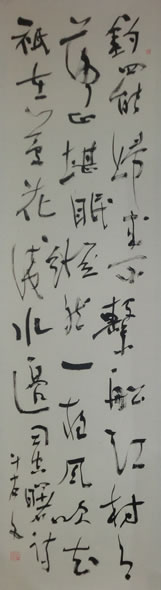 釣罷歸來不繫船江村月
落正堪眠縱然一夜風吹去
祇在蘆花淺水邊司空曙詩